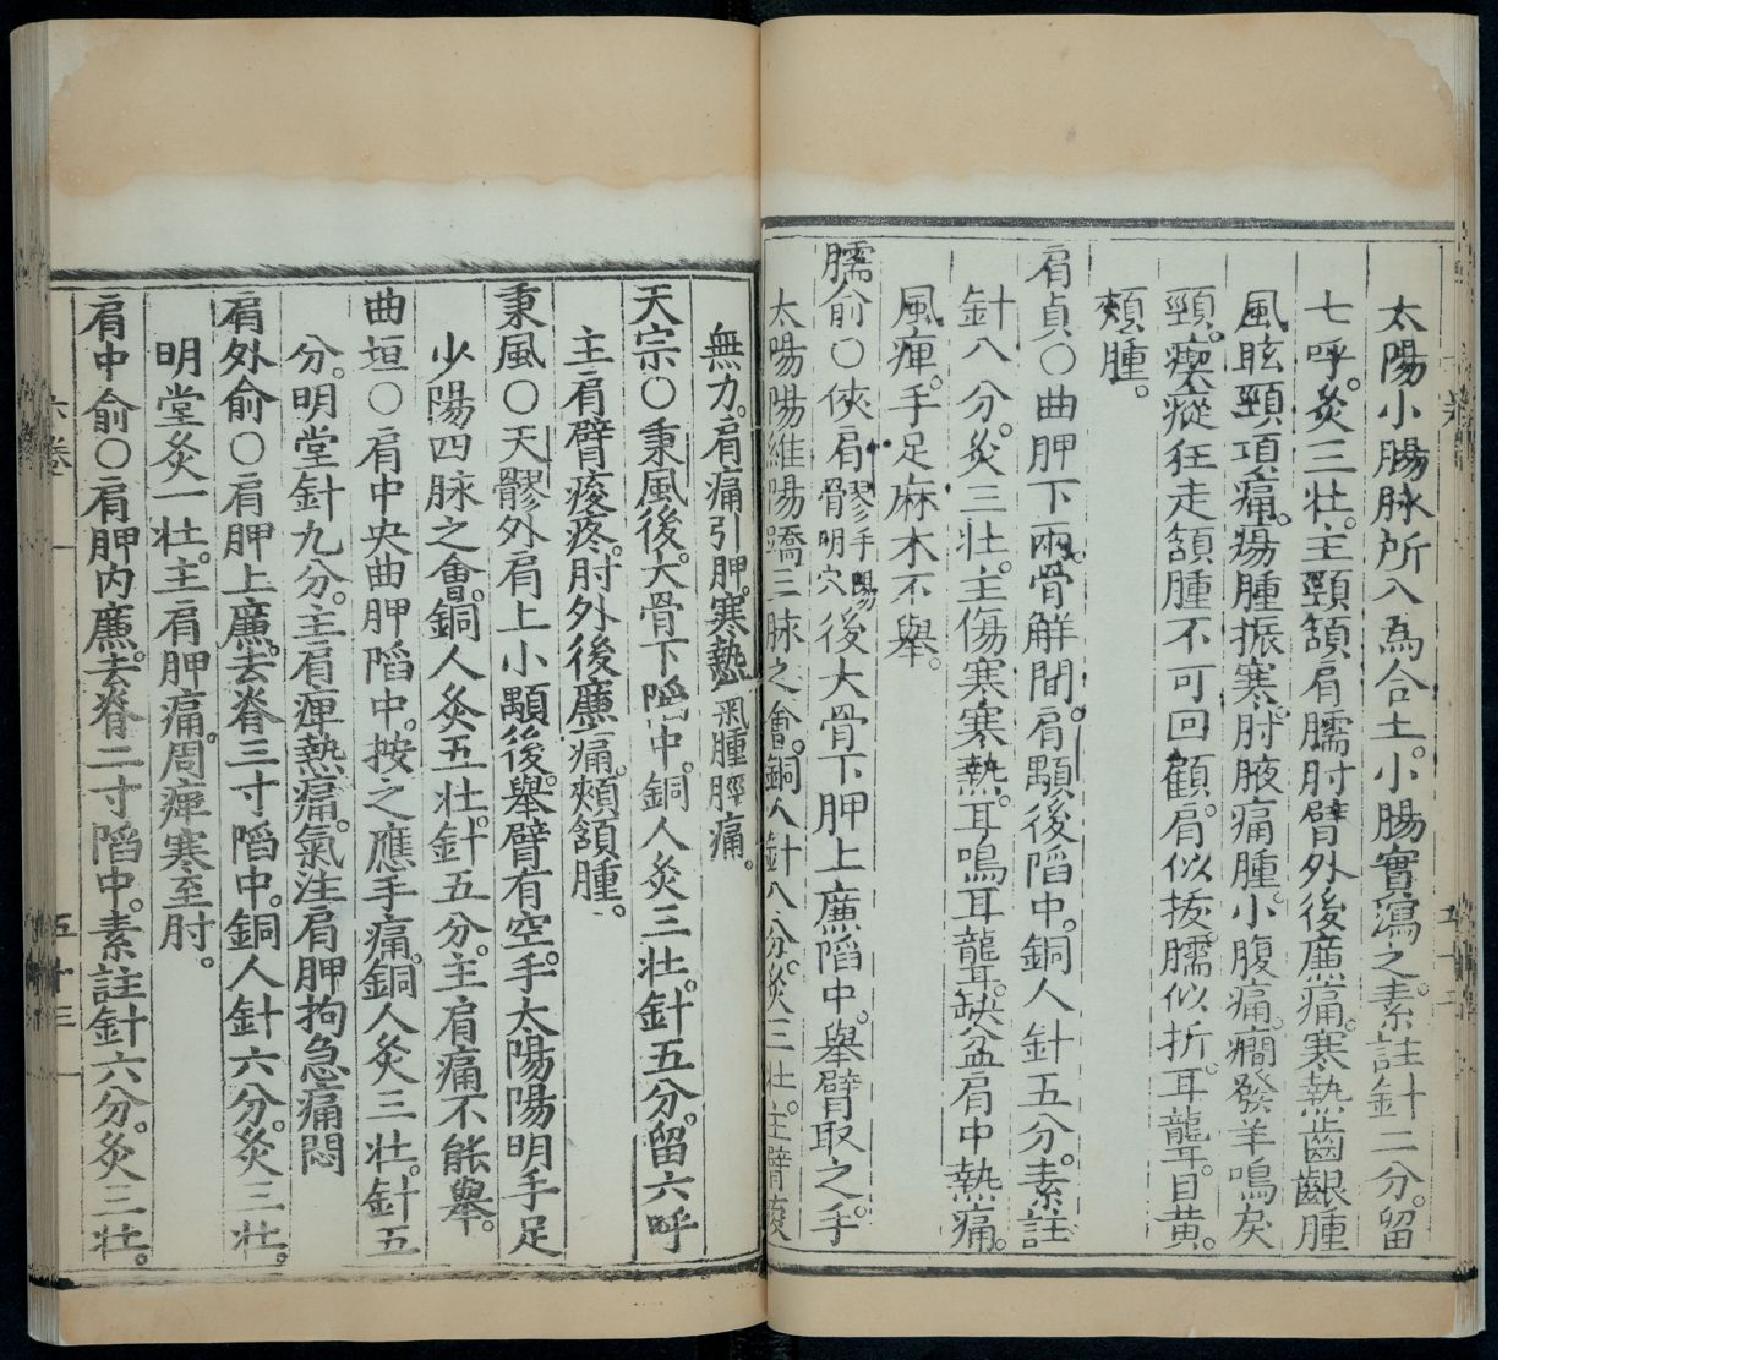 太陽小腸脉所入為合土。小腸實瀉之。素註針二分。留
七呼。灸三壮。主頸頷肩臑肘臂外後廉痛。寒熱齒齦腫
風眩頸項痛。瘍腫振寒。肘腋痛腫。小腹痛。癇發羊鳴戾
頸。瘈瘲狂走頷腫不可回顧。肩似拔。臑似折。耳聾。目黄。
頰腫。
肩貞○曲胛下兩骨解間。肩顒後陷中。銅人針五分。素註
針八分。灸三壮。主傷寒寒熱。耳鳴耳聾。缺盆肩中熱痛。
風痺。手足麻木不舉。
臑俞○侠肩髎手陽明穴後大骨下胛上廉陷中。舉臂取之手
太陽陽維陽蹻三脉之會。銅人針八分。灸三壮。主臂痠
無力。肩痛引胛。寒熱氣腫脛痛。
天宗○秉風後。大骨下陷中。銅人灸三壮。針五分。留六呼
主肩臂痠疼。肘外後廉痛。頰頷腫。
秉風○天髎外肩上小顒後。舉臂有空。手太陽陽明手足
少陽四脉之會。銅人灸五壮。針五分。主肩痛不能舉。
曲垣○肩中央曲胛陷中。按之應手痛。銅人灸三壮。針五
分。明堂針九分。主肩痺熱痛。氣注肩胛拘急痛悶
肩外俞○肩胛上廉。去脊三寸陷中。銅人針六分。灸三壮。
明堂灸一壮。主肩胛痛。周痺寒至肘。
肩中俞○肩胛内廉。去脊二寸陷中。素註針六分。灸三壮。
六卷
五十三